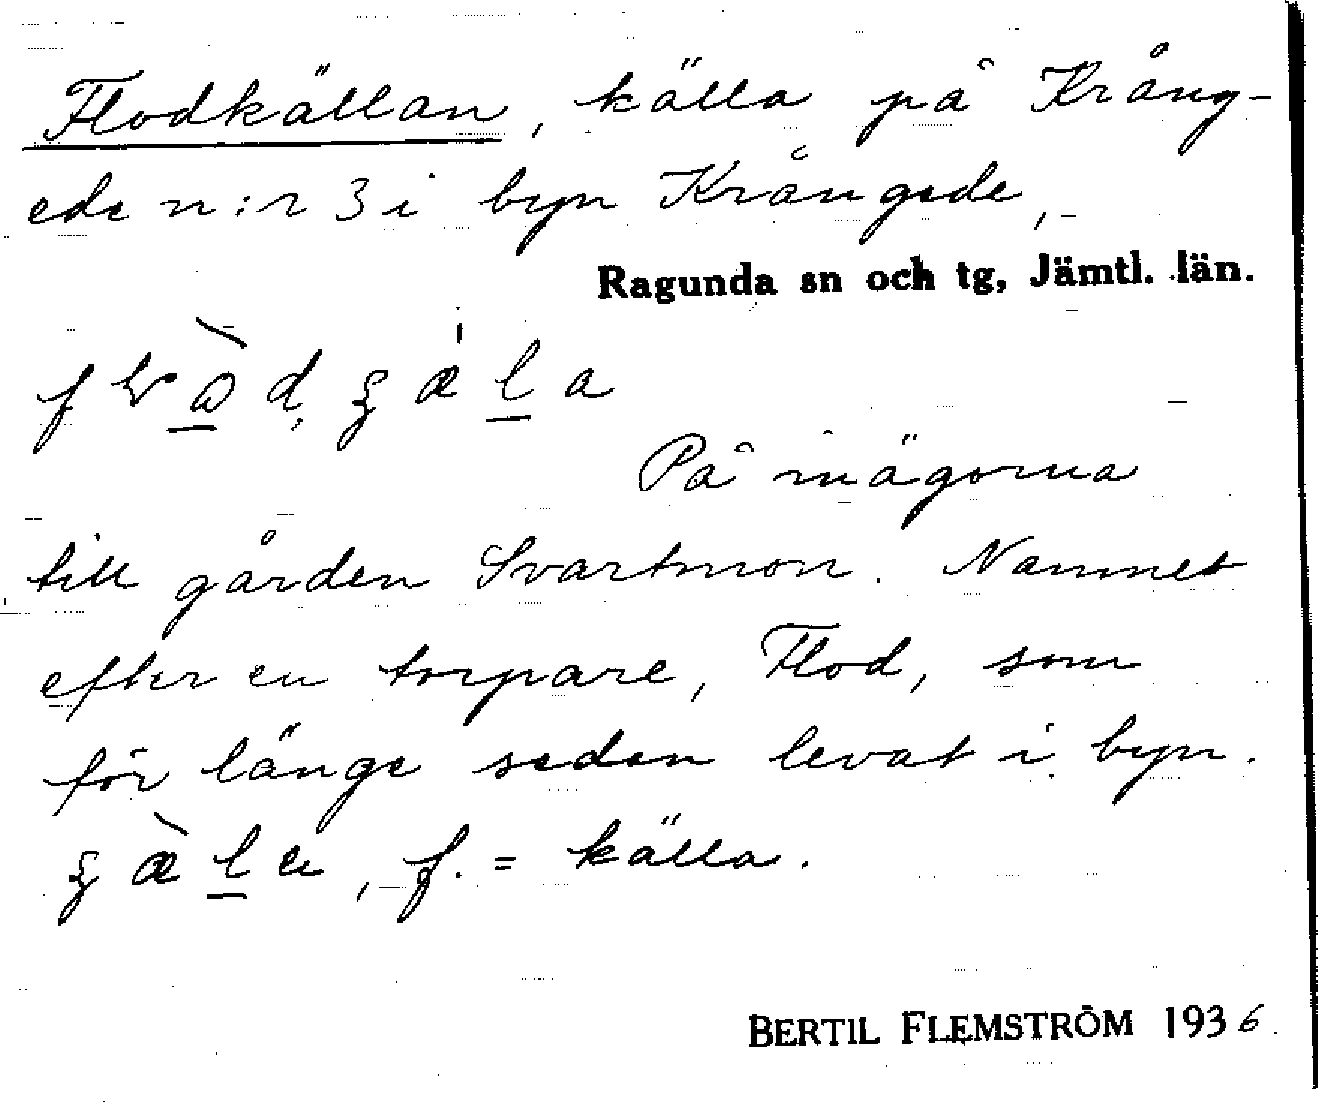 Flodkällan, källa på Krång-
ede n:r 3 i byn Krångede,
Ragunda sn och tg, Jämtl. län.
På inägorna
till gården Svartmon. Namnet
efter en torpare, Flod, som
för länge sedan levat i byn.
, f. = källa.
BERTIL FLEMSTRÖM 1936.